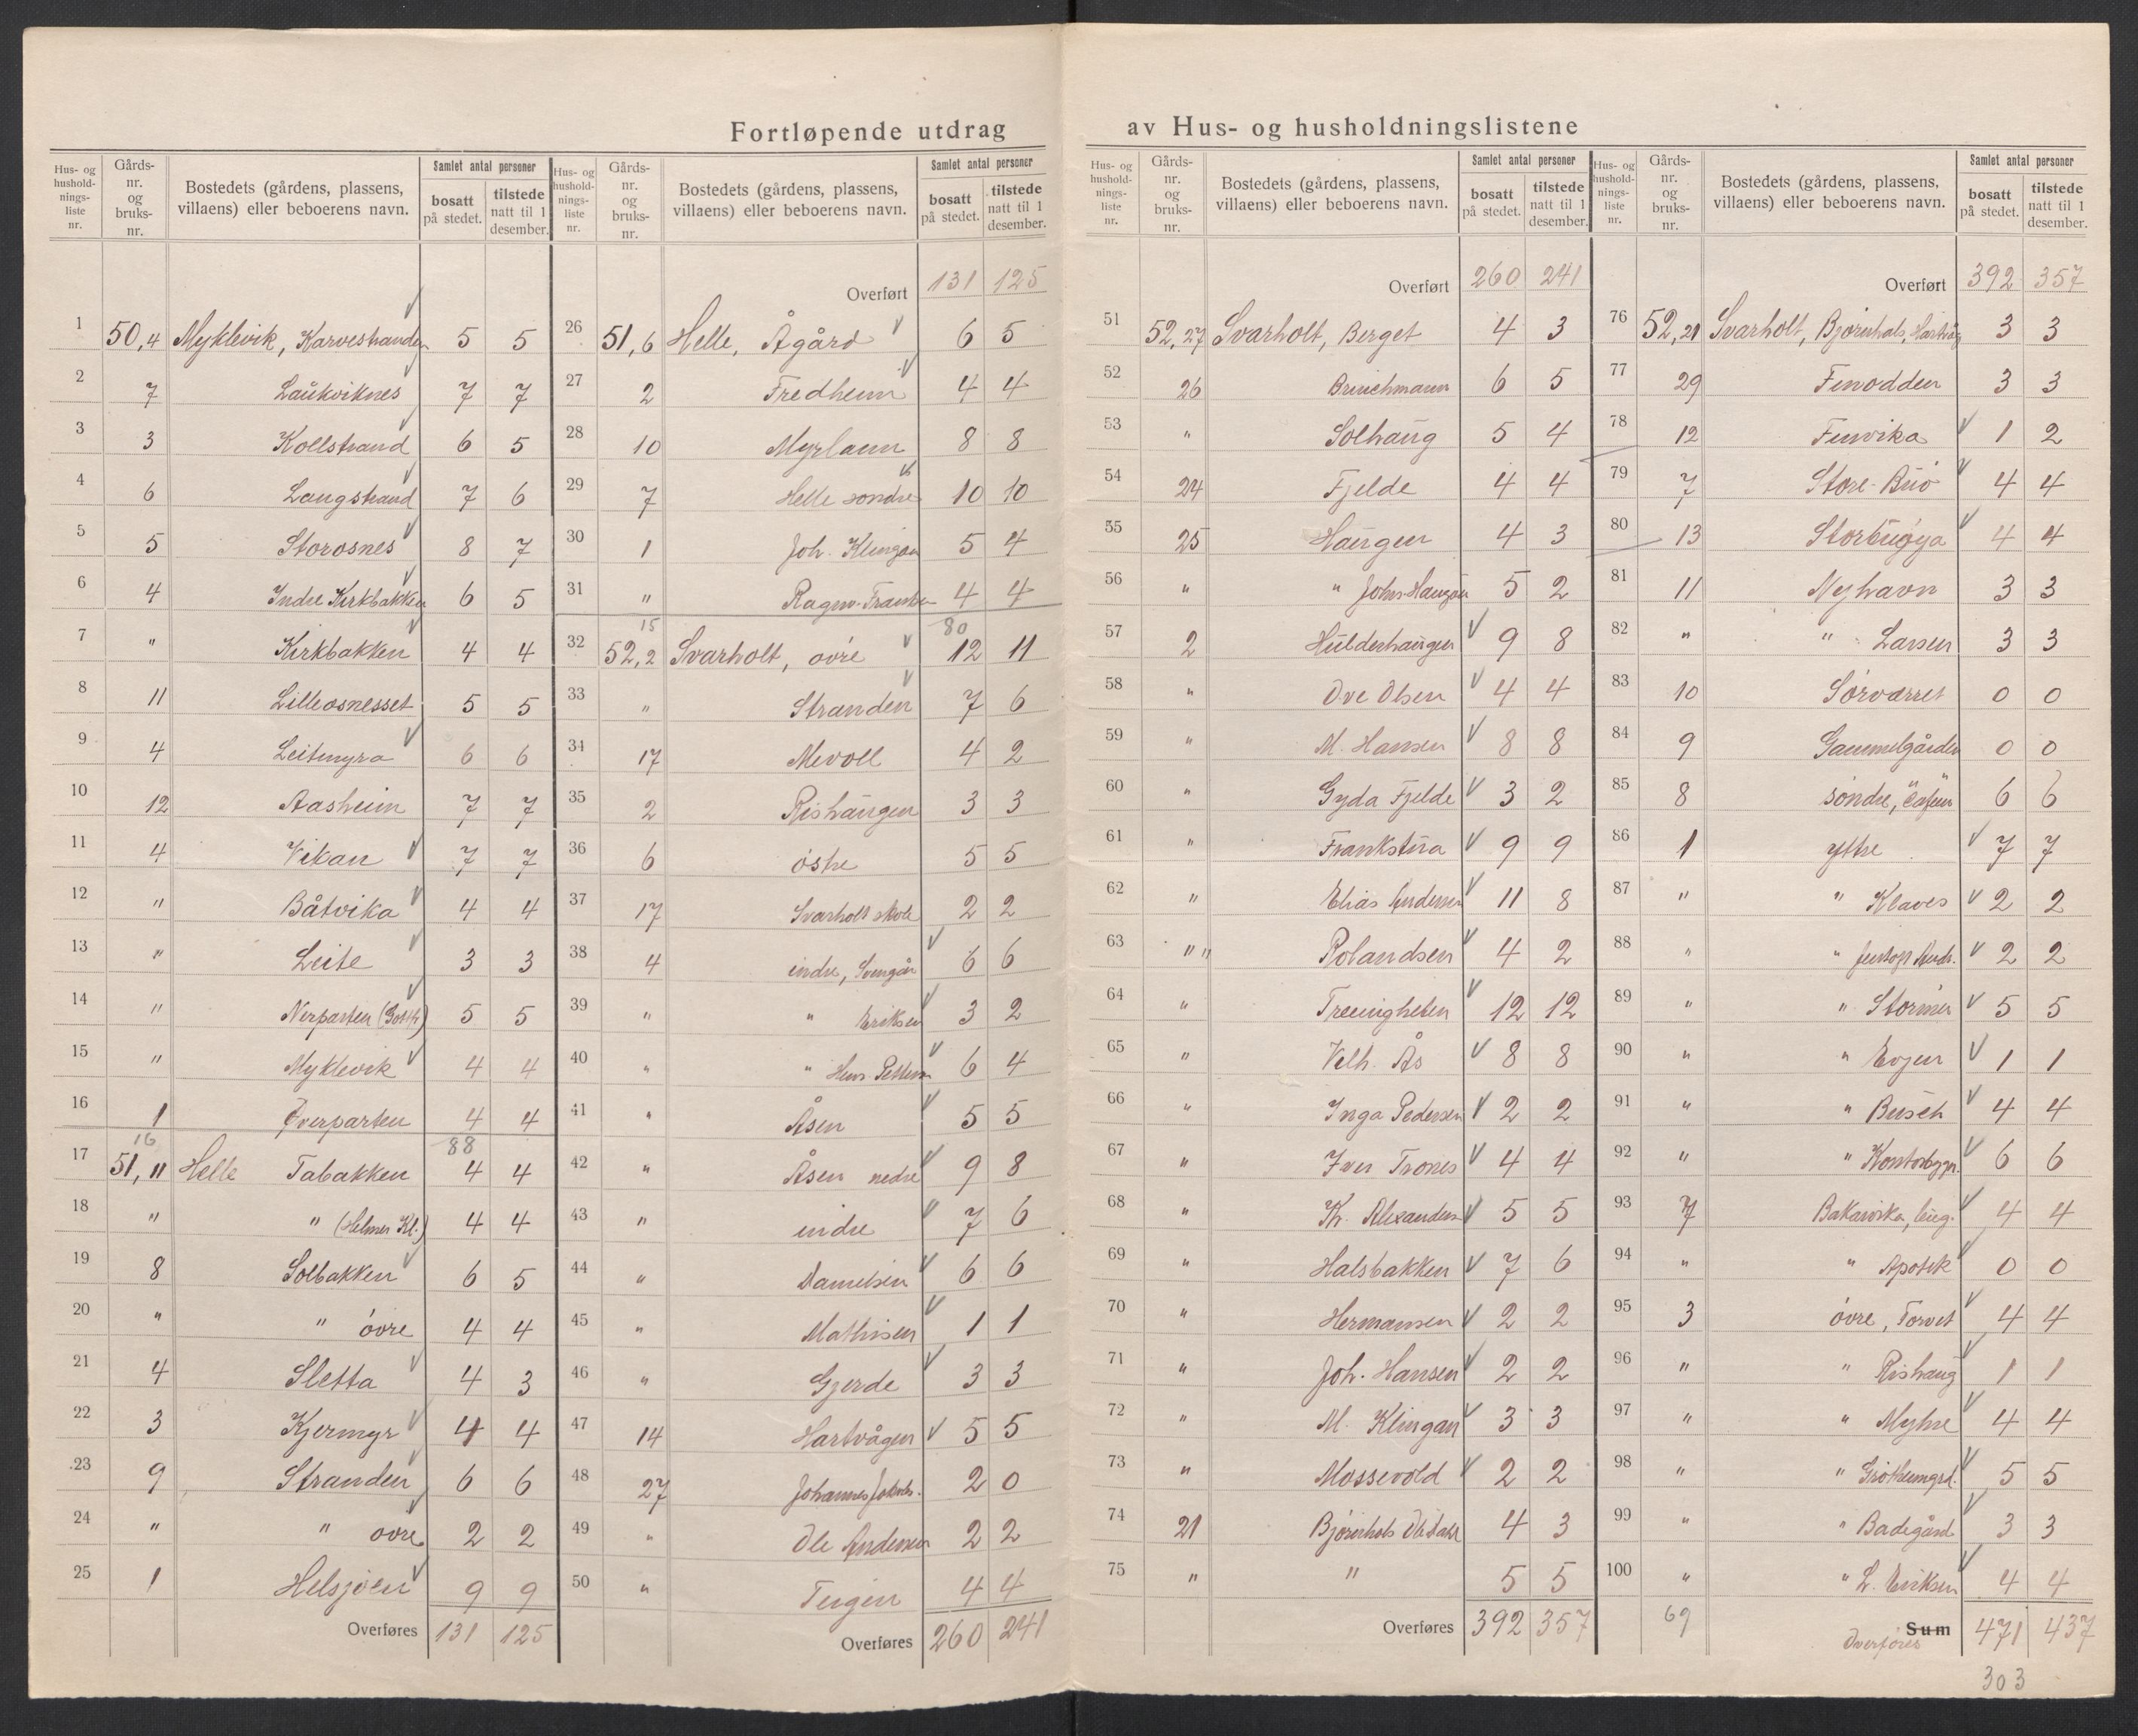 Fortløpende utdrag av Hus- og husholdningslistene
Hus- og husholdnings- liste nr. | Gårds- nr. og bruks- nr. | Bostedets (gårdens, plassens, villaens) eller beboerens navn. | Samlet antal personer bosatt på stedet. | tilstede natt til 1 desember.
1 50,4 Myklevik, Karvestranden 5 5
2 7 Laukviknes 7 7
3 3 Kollstrand 6 5
4 6 Langstrand 7 6
5 5 Storosnes 8 7
6 4 Indre Kirkbakken 6 5
7 " Kirkbakken 4 4
8 11 Lilleosnesset 5 5
9 4 Leitmyra 6 6
10 12 Aasheim 7 7
11 4 Vikan 7 7
12 " Båtvika 4 4
13 " Leite 3 3
14 " Nerparten 5 5
15 " Myklevik 4 4
16 1 Øverparten 4 4
16 88
17 51,11 Helle Tabakken 4 4
18 " " (Helmer Kl.) 4 4
19 8 Solbakken 6 5
20 " " övre 4 4
21 4 Sletta 4 3
22 3 Kjermyr 4 4
23 9 Stranden 6 6
24 " " övre 2 2
25 1 Helsjöen 9 9
Overføres 131 125
Hus- og husholdnings- liste nr. | Gårds- nr. og bruks- nr. | Bostedets (gårdens, plassens, villaens) eller beboerens navn. | Samlet antal personer bosatt på stedet. | tilstede natt til 1 desember.
Overført 131 125
26 51,6 Helle, Ågård 6 5
27 2 Fredheim 4 4
28 10 Myrlann 8 8
29 7 Helle söndre 10 10
30 1 Joh. Klingan 5 4
31 " Ragnv. 4 4
15 80
32 52,2 Svarholt, övre 12 11
33 " Stranden 7 6
34 17 Mevoll 4 2
35 2 Rishaugen 3 3
36 6 östre 5 5
37 17 Svarholt skole 2 2
38 4 indre, 6 6
39 " " Eriksen 3 2
40 " " 6 4
41 " Åsen 5 5
42 " Åsen nedre 9 8
43 " indre 7 6
44 " Danielsen 6 6
45 " Mathisen 1 1
46 " Gjerde 3 3
47 14 Hartvågen 5 5
48 27 Johannes 2 0
49 " Ole Andersen 2 2
50 " Teigen 4 4
Overføres 260 241
Hus- og husholdnings- liste nr. | Gårds- nr. og bruks- nr. | Bostedets (gårdens, plassens, villaens) eller beboerens navn. | Samlet antal personer bosatt på stedet. | tilstede natt til 1 desember.
Overført 260 241
51 52,27 Svarholt, Berget 4 3
52 26 Brinchmann 6 5
53 " Solhaug 5 4
54 24 Fjelde 4 4
55 25 Haugen 4 3
56 " " Johs. Haugan 5 2
57 2 Hulderhaugen 9 8
58 " Ove Olsen 4 4
59 " M. Hansen 8 8
60 " Gyda Fjelde 3 2
61 " Frankstua 9 9
62 " Elias Andersen 11 8
63 " " Rolandsen 4 2
64 " Treenigheten 12 12
65 " Velh. Ås 8 8
66 " Inga Pedersen 2 2
67 " Iver Trones 4 4
68 " Kr. Alexanders. 5 5
69 " Halsbakken 7 6
70 " Hermansen 2 2
71 " Joh. Hansen 2 2
72 " M. Klingan 3 3
73 " Mossevold 2 2
74 21 Bjørnhals 4 3
75 " " 5 5
Overføres 392 357
Hus- og husholdnings- liste nr. | Gårds- nr. og bruks- nr. | Bostedets (gårdens, plassens, villaens) eller beboerens navn. | Samlet antal personer bosatt på stedet. | tilstede natt til 1 desember.
Overført 392 357
76 52,21 Svarholt, Bjørnhals, 3 3
77 29 Finnodden 3 3
78 12 Finvika 1 2
79 7 Store-Buö 4 4
80 13 Storbuøya 4 4
81 11 Nyhavn 3 3
82 " " Larsen 3 3
83 10 Sörværret 0 0
84 9 Gammelgården 0 0
85 8 söndre, "Cafeen 6 6
86 1 ytre 7 7
87 " " Klaves 2 2
88 " " 2 2
89 " " Stormer 5 5
90 " " Evjen 1 1
91 " " Busch 4 4
92 " " Kontorbygn. 6 6
93 7 Bakarvika, 4 4
94 " " Apotek 0 0
95 3 övre, Torvet 4 4
96 " " Rishaug 1 1
97 " " Myhre 4 4
98 " " 5 5
99 " " Badegård 3 3
100 " " L. Eriksen 4 4
69 Overføres Sum 471 437
303